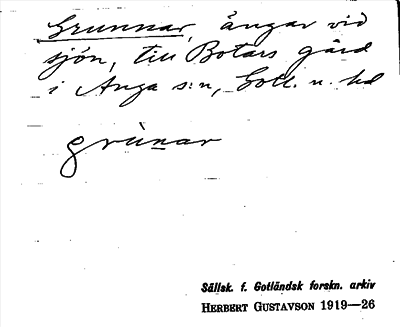 Grunnar, ängar vid
sjön, till Botars gård
i Anga s:n, Gotl. n. hd
grùnar
Sällsk. f. Gotländsk forskn. arkiv
HERBERT GUSTAVSON 1919—26